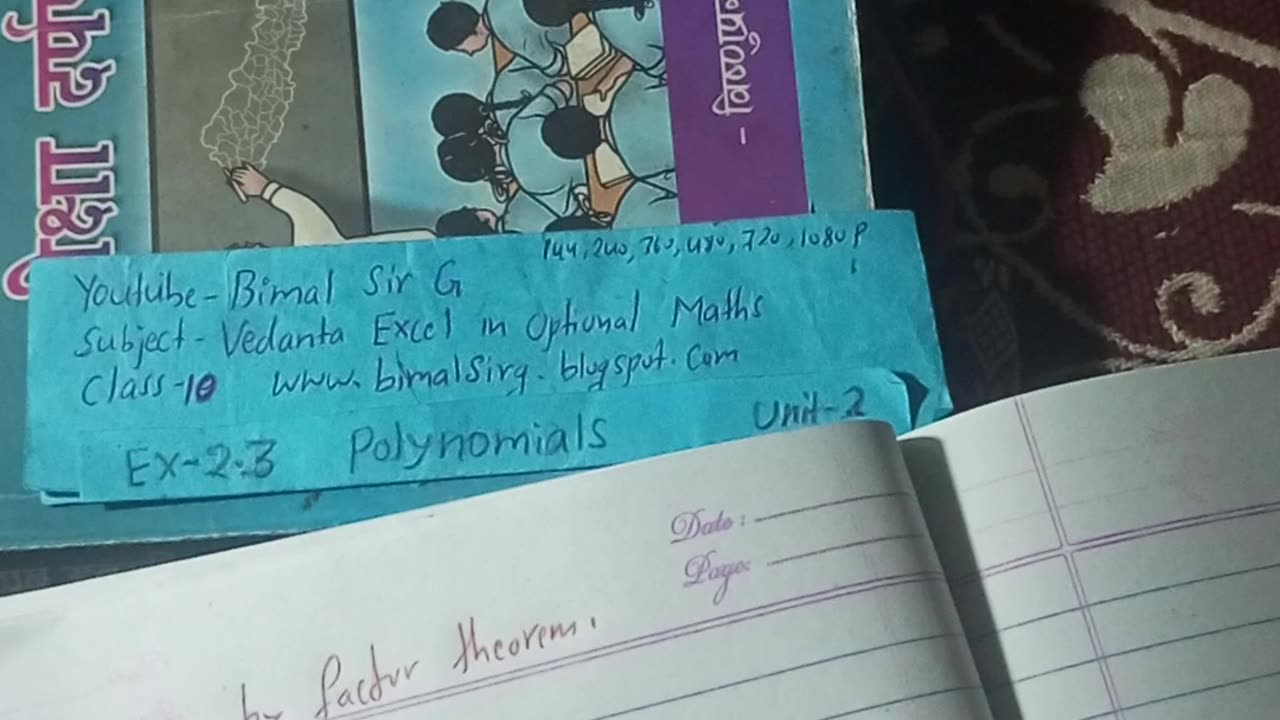 विवरणिका -
144, 240, 360, 480, 720, 1080 P
Youtube - Bimal Sir G
Subject - Vedanta Excel in Optional Maths
Class-10 www.bimalsirg.blogspot.com
Ex-2.3 Polynomials Unit-2
Date :
Page:
by factor theorem.